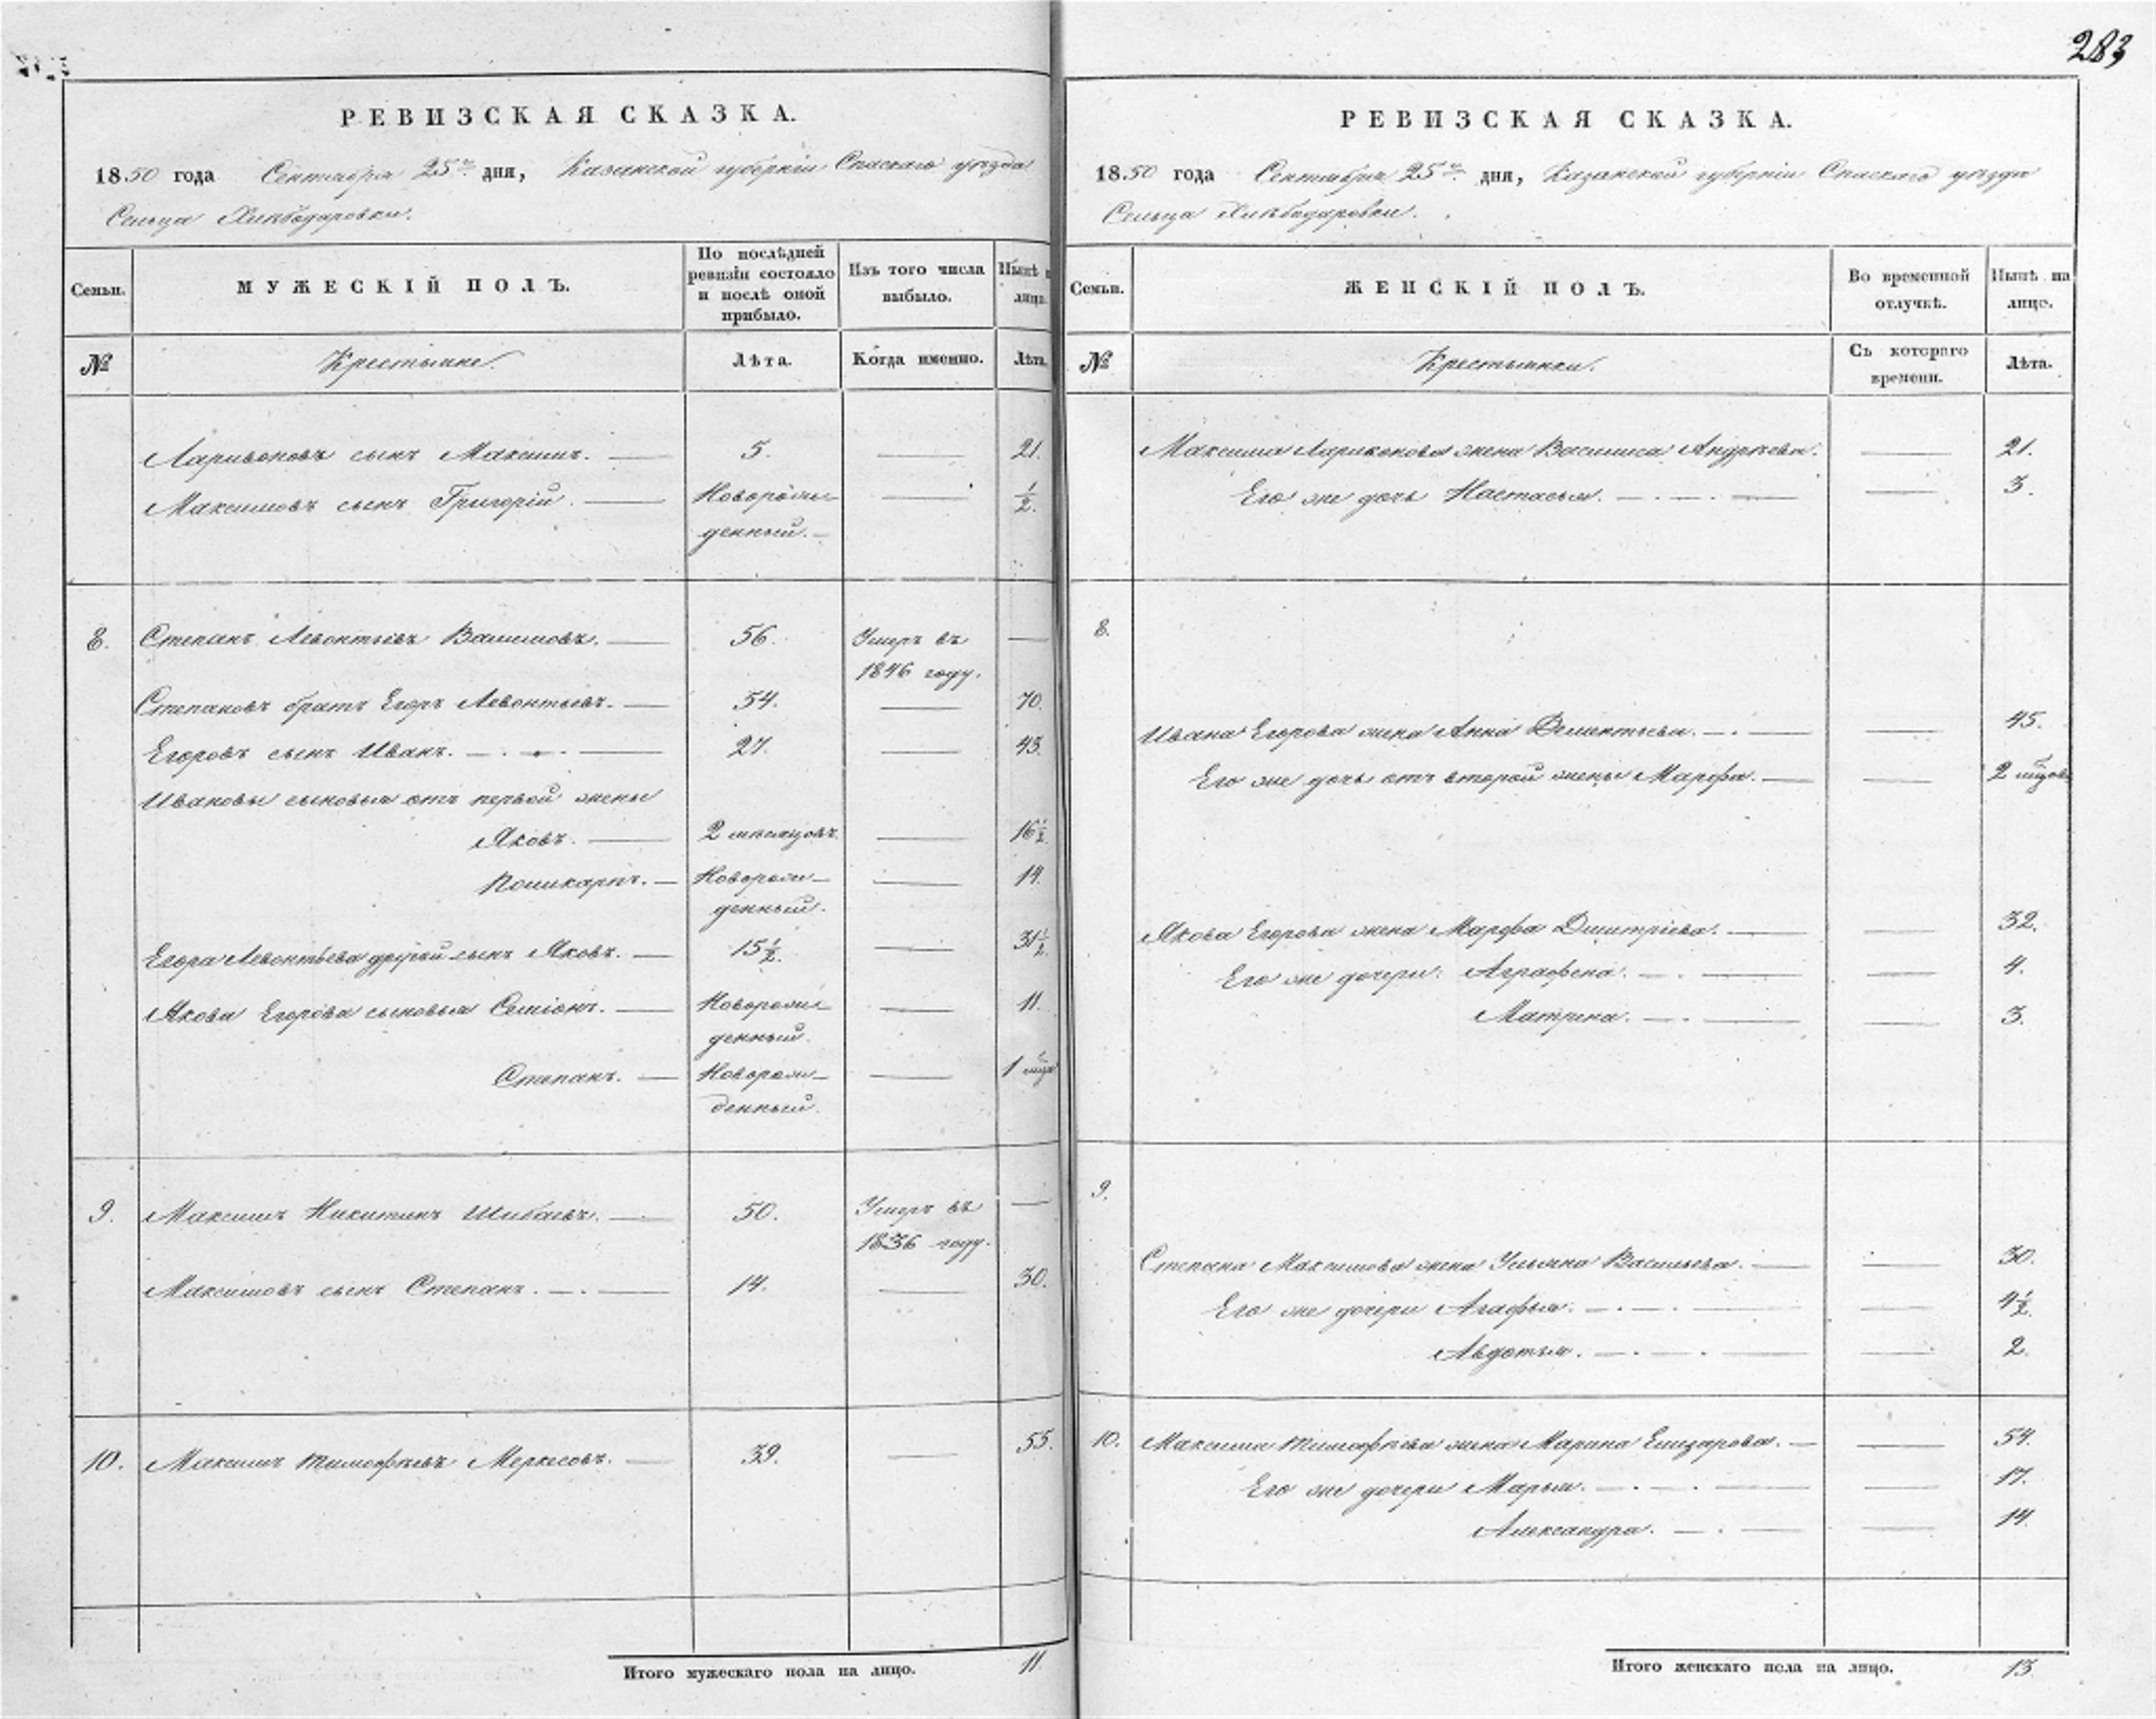 283
РЕВИЗСКАЯ СКАЗКА.
1850 года Сентября 25го дня, Казанской губерніи Спаскаго уѣзда
Сельца Хлѣбодаровки.
Семьи.
МУЖЕСКІЙ ПОЛЪ.
По послѣдней
ревизіи состояло
и послѣ оной
прибыло.
Изъ того числа
выбыло.
Нынѣ
лицо.
№
Крестьяне.
Лѣта.
Когда именно.
Лѣта.
Ларивоновъ сынъ Максимъ. 5. 21.
Максимовъ сынъ Григорій. Новорож- 1/2.
денный.
8. Степанъ Левонтьевъ 56. Умеръ въ
1846 году.
Степановъ братъ Егоръ Левонтьевъ. 54. 70.
Егоровъ сынъ Иванъ. 27. 43.
Ивановы сыновья отъ первой жены
Яковъ. 2 мѣсяцовъ. 16 1/2.
Поликарпъ. Новорож- 14.
денный.
Егора Левонтьева другой сынъ Яковъ. 15 1/2. 31 1/2.
Якова Егорова сыновья Семіонъ. Новорож- 11.
денный.
Степанъ. Новорож- 1 мѣся
денный.
9. Максимъ Никитинъ Шибаевъ. 50. Умеръ въ
1836 году.
Максимовъ сынъ Степанъ. 14. 30.
10. Максимъ Тимофѣевъ Меркесовъ. 39. 55.
Итого мужескаго пола на лицо. 11.
РЕВИЗСКАЯ СКАЗКА.
1850 года Сентября 25го дня, Казанской губерніи Спаскаго уѣзда
Сельца Хлѣбодаровки.
Семьи.
ЖЕНСКІЙ ПОЛЪ.
Во временной
отлучкѣ.
Нынѣ на
лицо.
№
Крестьянки.
Съ котораго
времени.
Лѣта.
Максима Ларивонова жена Василиса Андрѣева. 21.
Его же дочь Настасья. 3.
8.
Ивана Егорова жена Анна Дементьева. 45.
Его же дочь отъ второй жены Марфа. 2 мѣсяцовъ
Якова Егорова жена Марфа Дмитріева. 32.
Его же дочери: Аграфена. 4.
Матрена. 3.
9.
Степана Максимова жена Ульяна Васильева. 30.
Его же дочери Агафья. 4 1/2.
Авдотья. 2.
10. Максима Тимофѣева жена Марина Елизарова. 54.
Его же дочери Марья. 17.
Александра. 14.
Итого женскаго пола на лицо. 13.